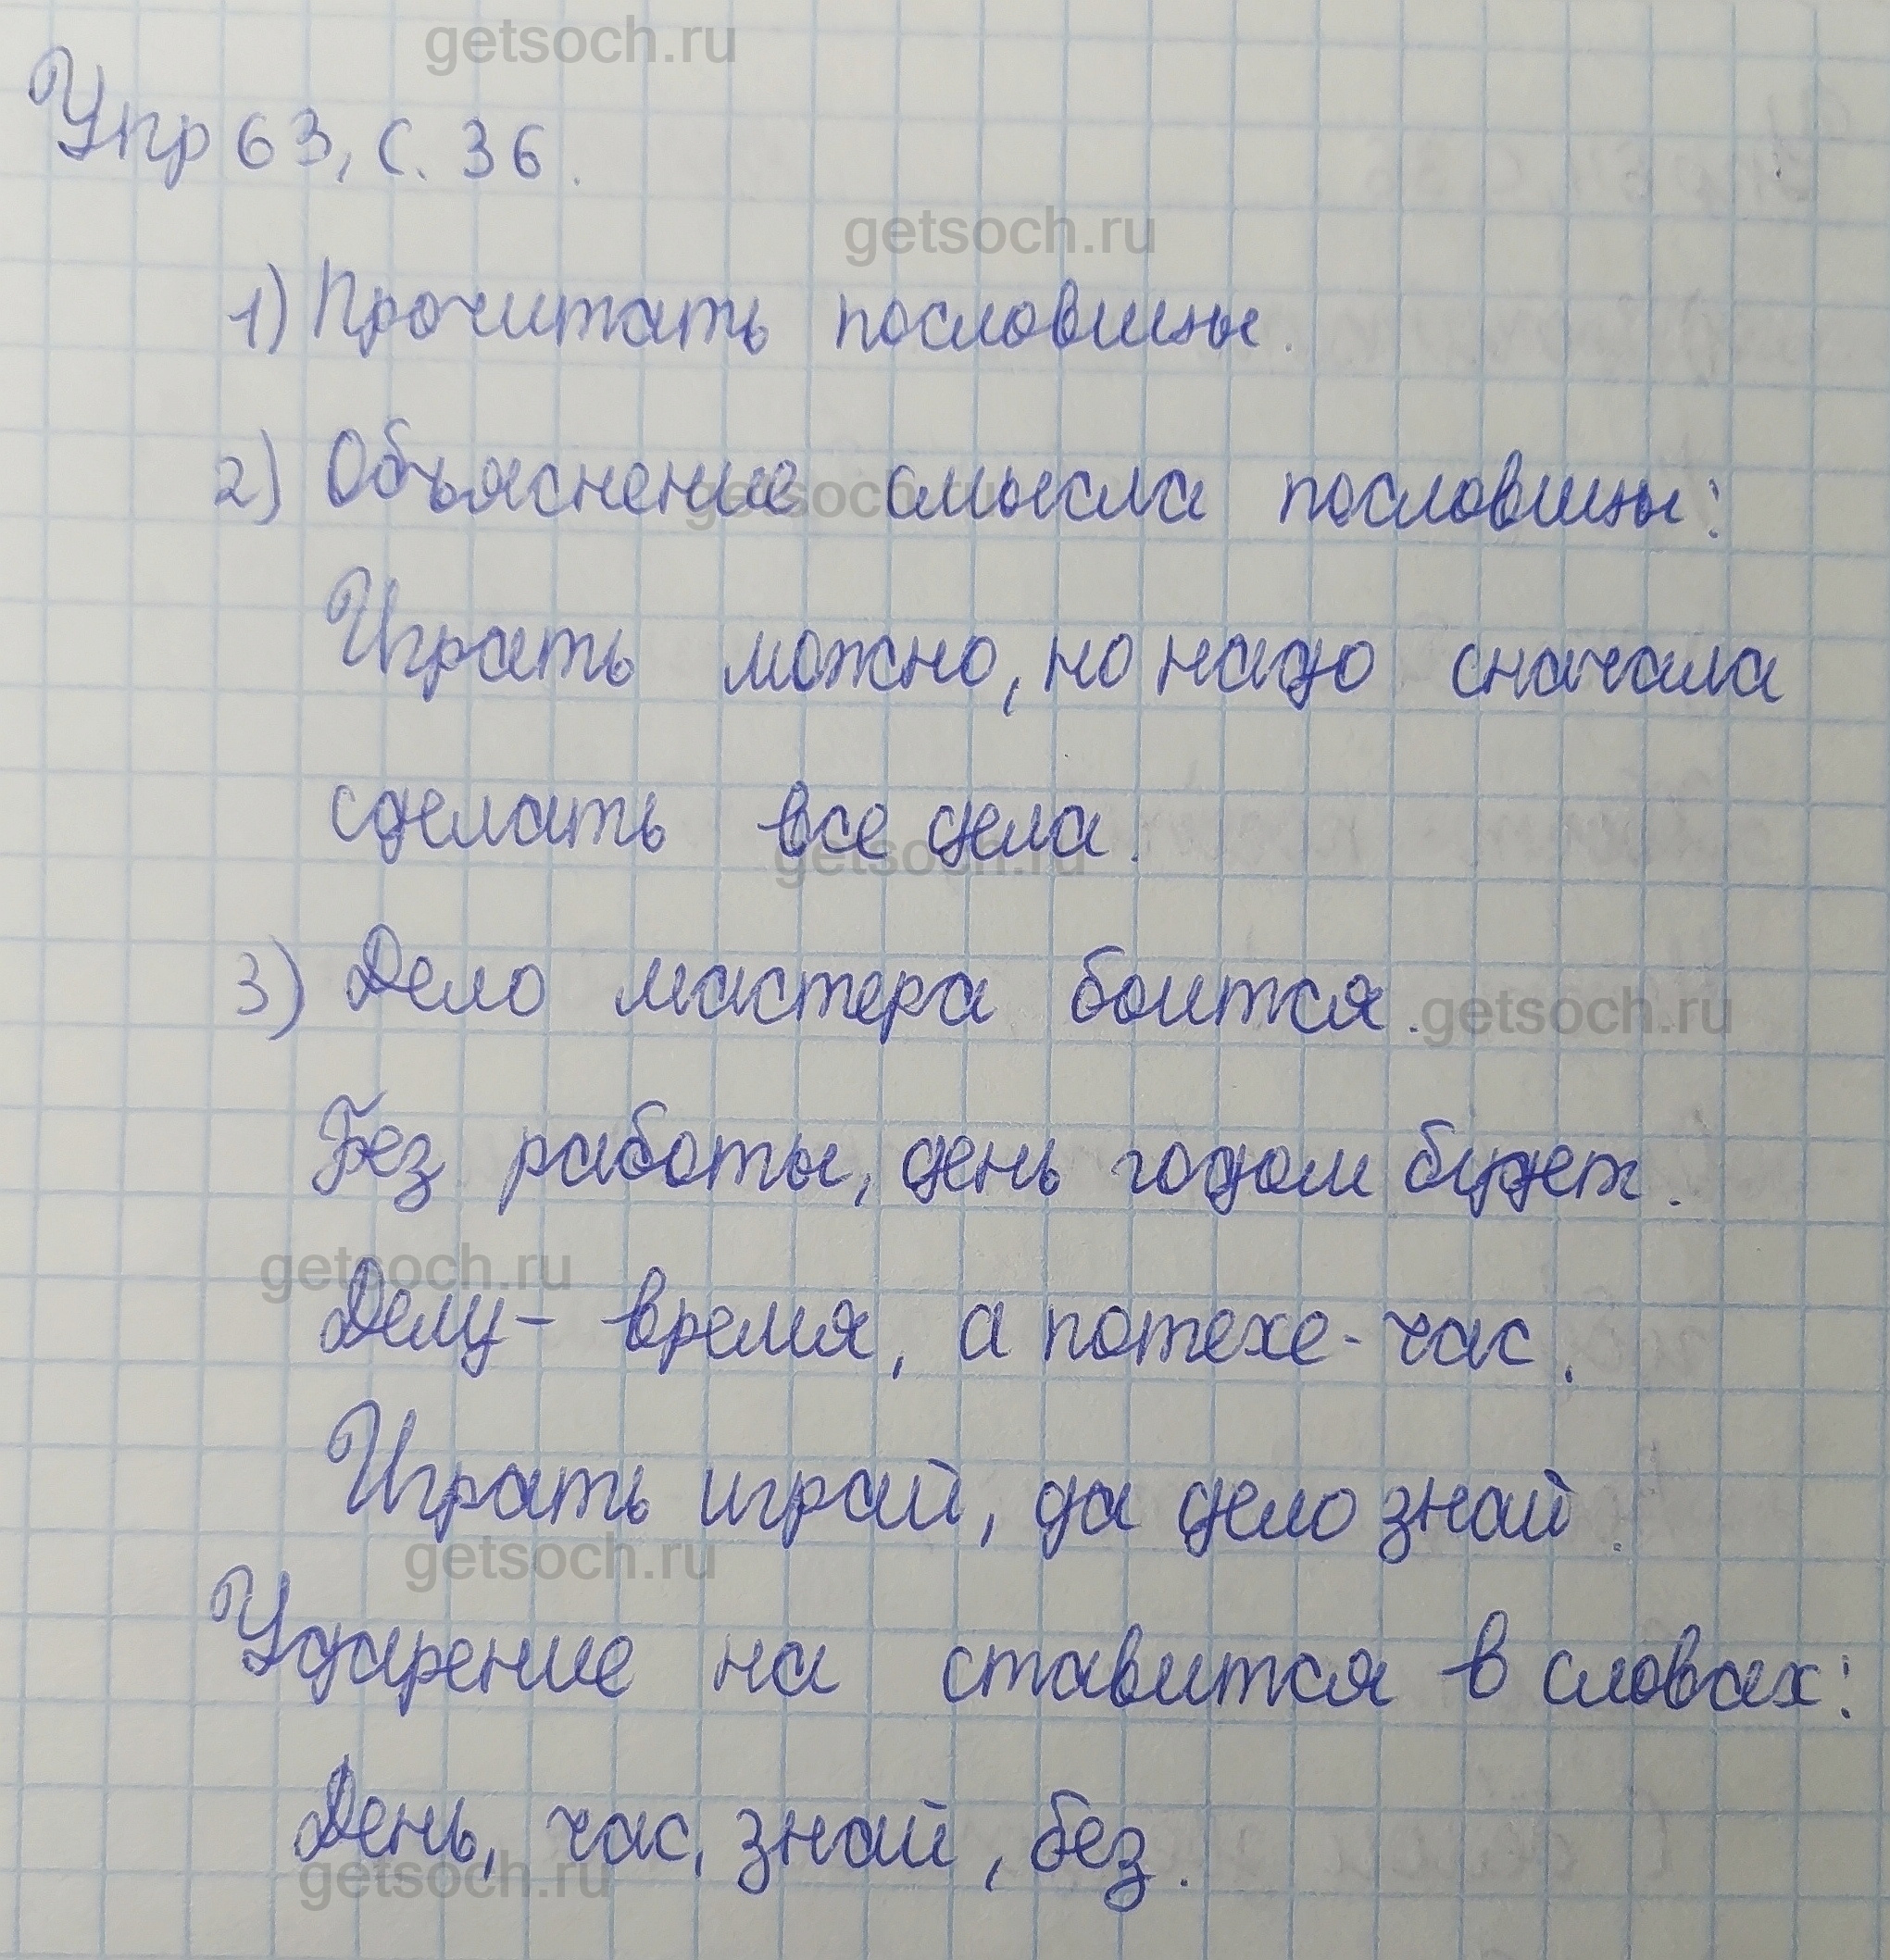 getsoch.ru
Упр 63, с. 36.
getsoch.ru
1) Прочитать пословицы.
2) Объяснение смысла пословицы:
getsoch.ru
Играть можно, но надо сначала
сделать все дела.
getsoch.ru
3) Дело мастера боится.
getsoch.ru
Без работы, день годом будет.
getsoch.ru
Делу - время, а потехе - час.
Играть играй, да дело знай.
getsoch.ru
Ударение на ставится в словах:
День, час, знай, без.
getsoch.ru